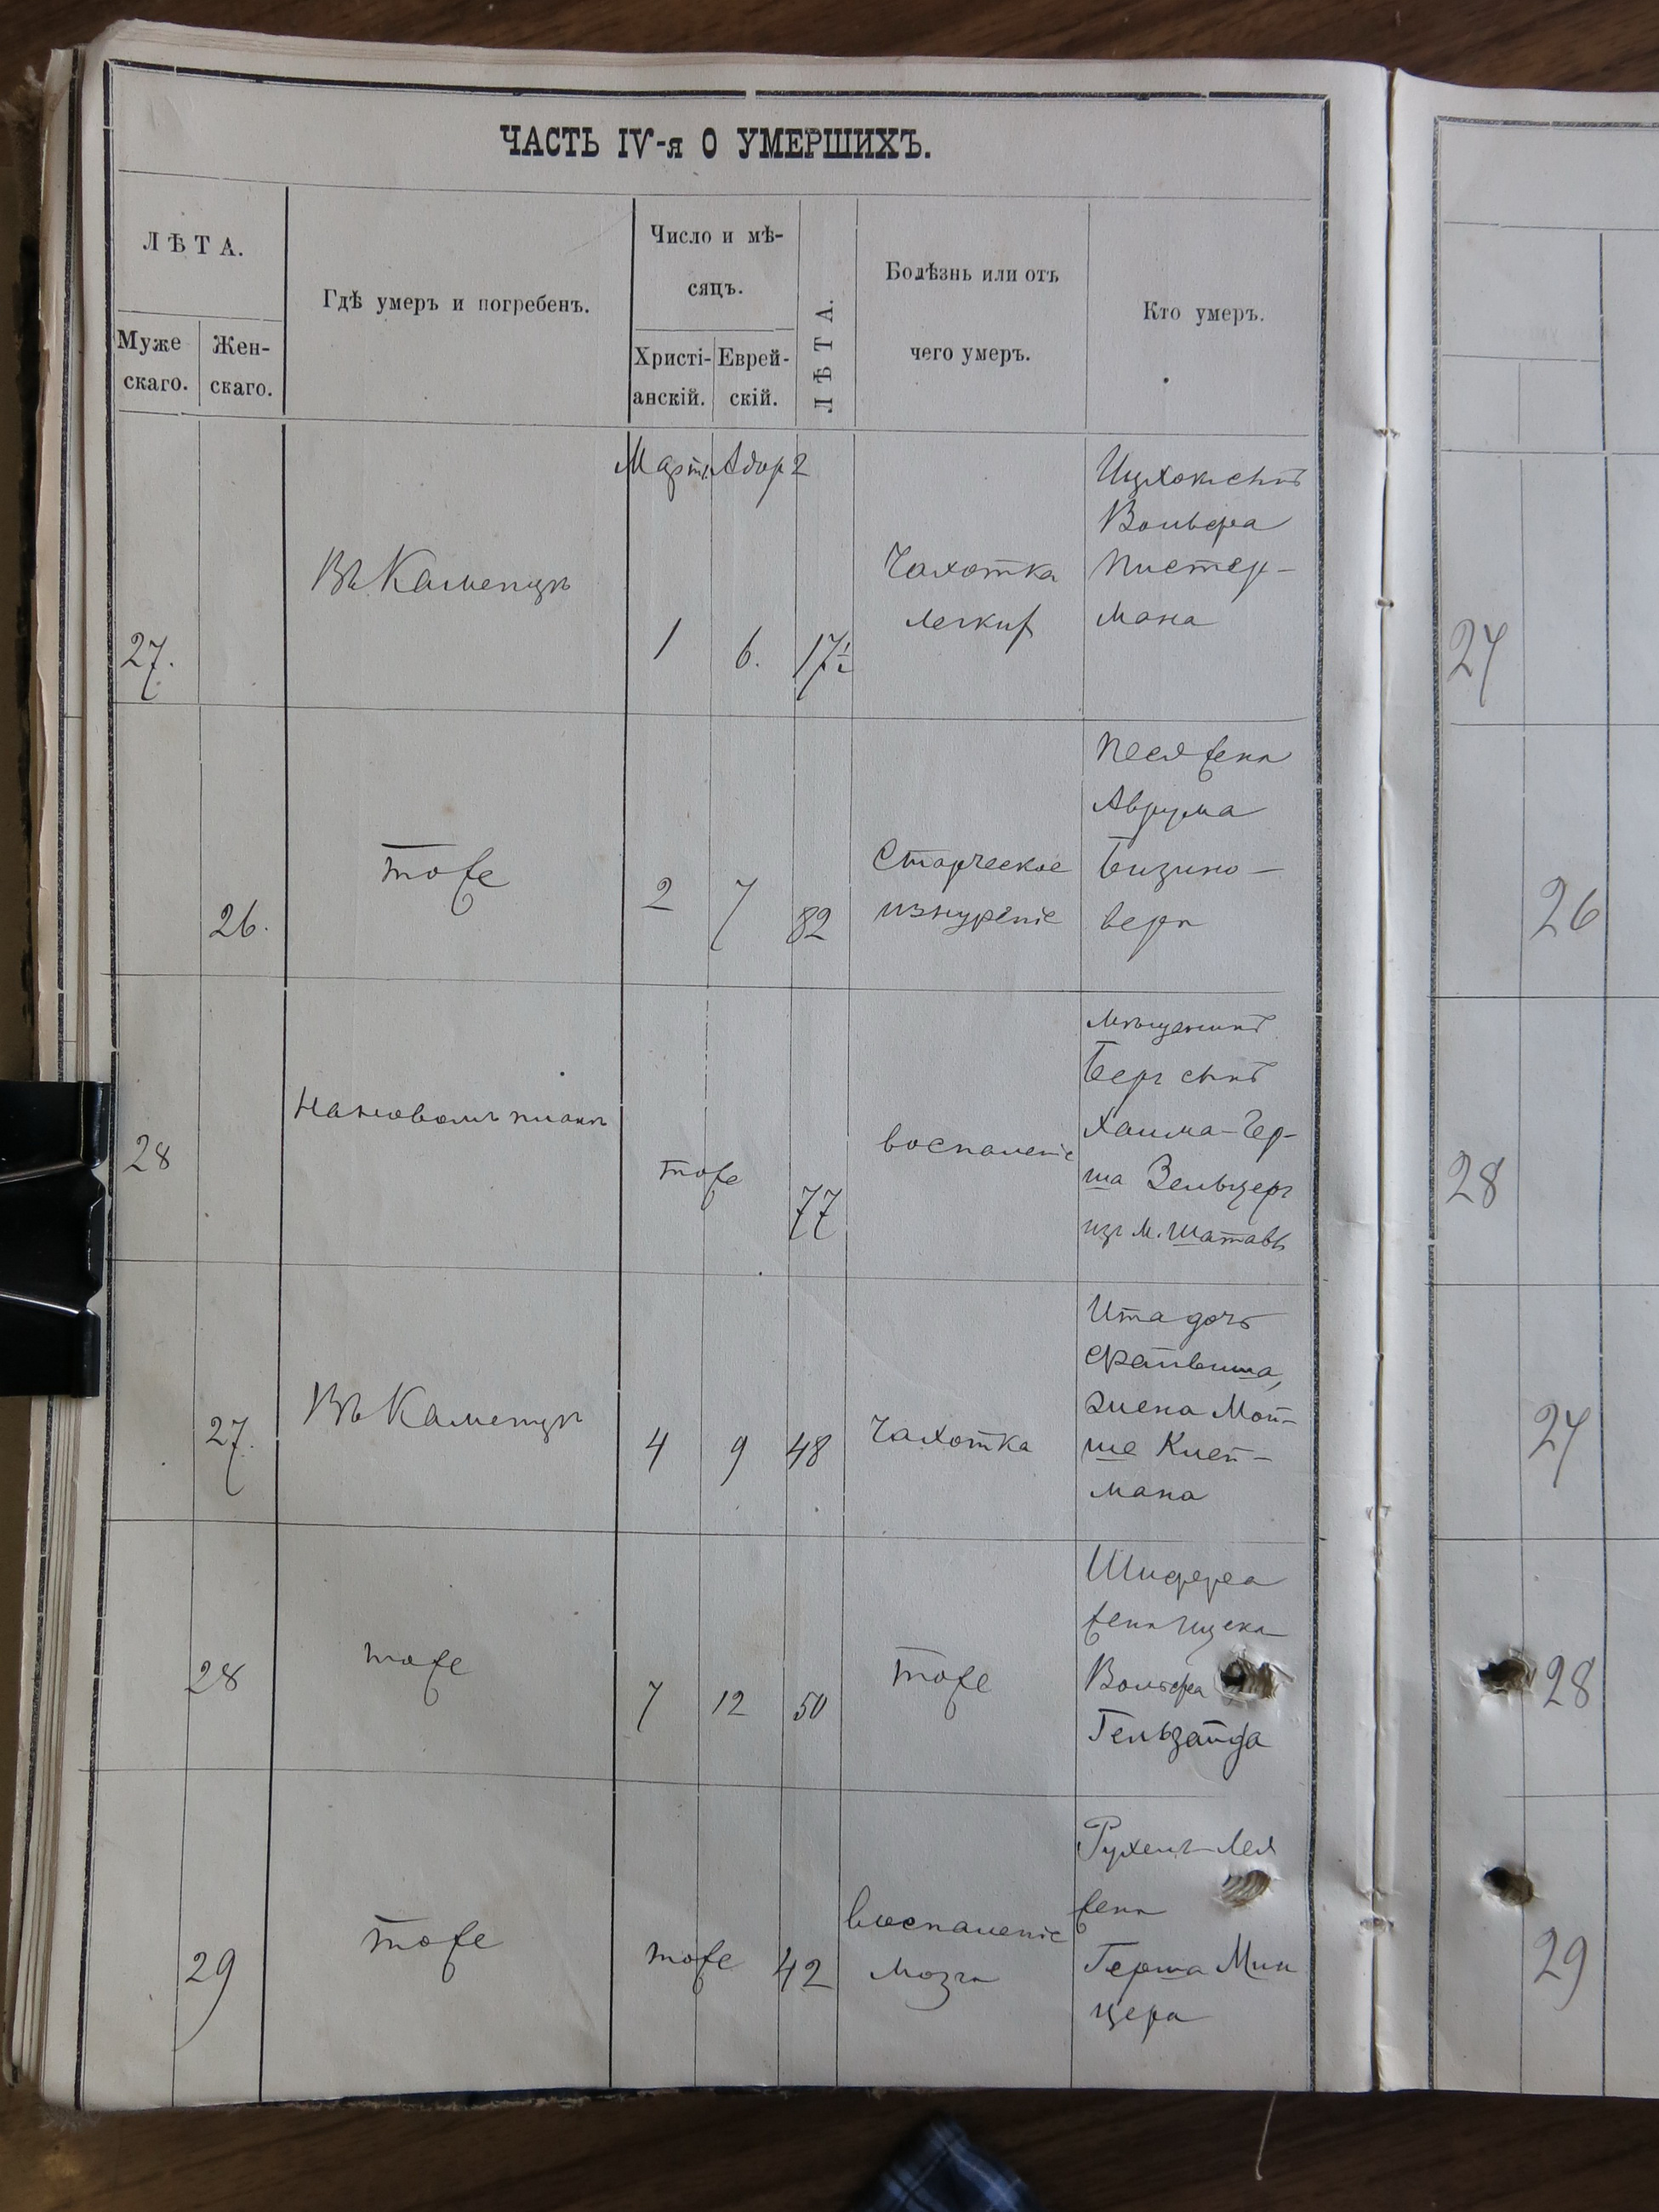 ЧАСТЬ IV-я О УМЕРШИХЪ.
ЛѢТА.
Муже
скаго.
Жен-
скаго.
Гдѣ умеръ и погребенъ.
Число и мѣ-
сяцъ.
Христі-
анскій.
Еврей-
скій.
ЛѢТА.
Болѣзнь или отъ
чего умеръ.
Кто умеръ.
Мартъ Адар 2
27.
Въ Каменцѣ
1
6.
17½
Чахотка
легких
Ицхок сынъ
Вольфа
Пистер-
мана
27
26.
тоже
2
7
82
Старческое
изнуреніе
Песя жена
Аврума
вера
26
28
На новомъ планѣ
тоже
77
воспаленіе
мѣщанинъ
Бер сынъ
Хаима-Гер-
ша Зельцер
из м. Шатавъ
28
27.
Въ Каменцѣ
4
9
48
Чахотка
Ита дочь
жена Мой-
ше Клей-
мана
27
28
тоже
7
12
50
тоже
Шифра
жена Ицека
Вольфа
Гельзанда
28
29
тоже
тоже
42
воспаленіе
мозга
Рухель-Лея
жена
Герша Мин
цера
29